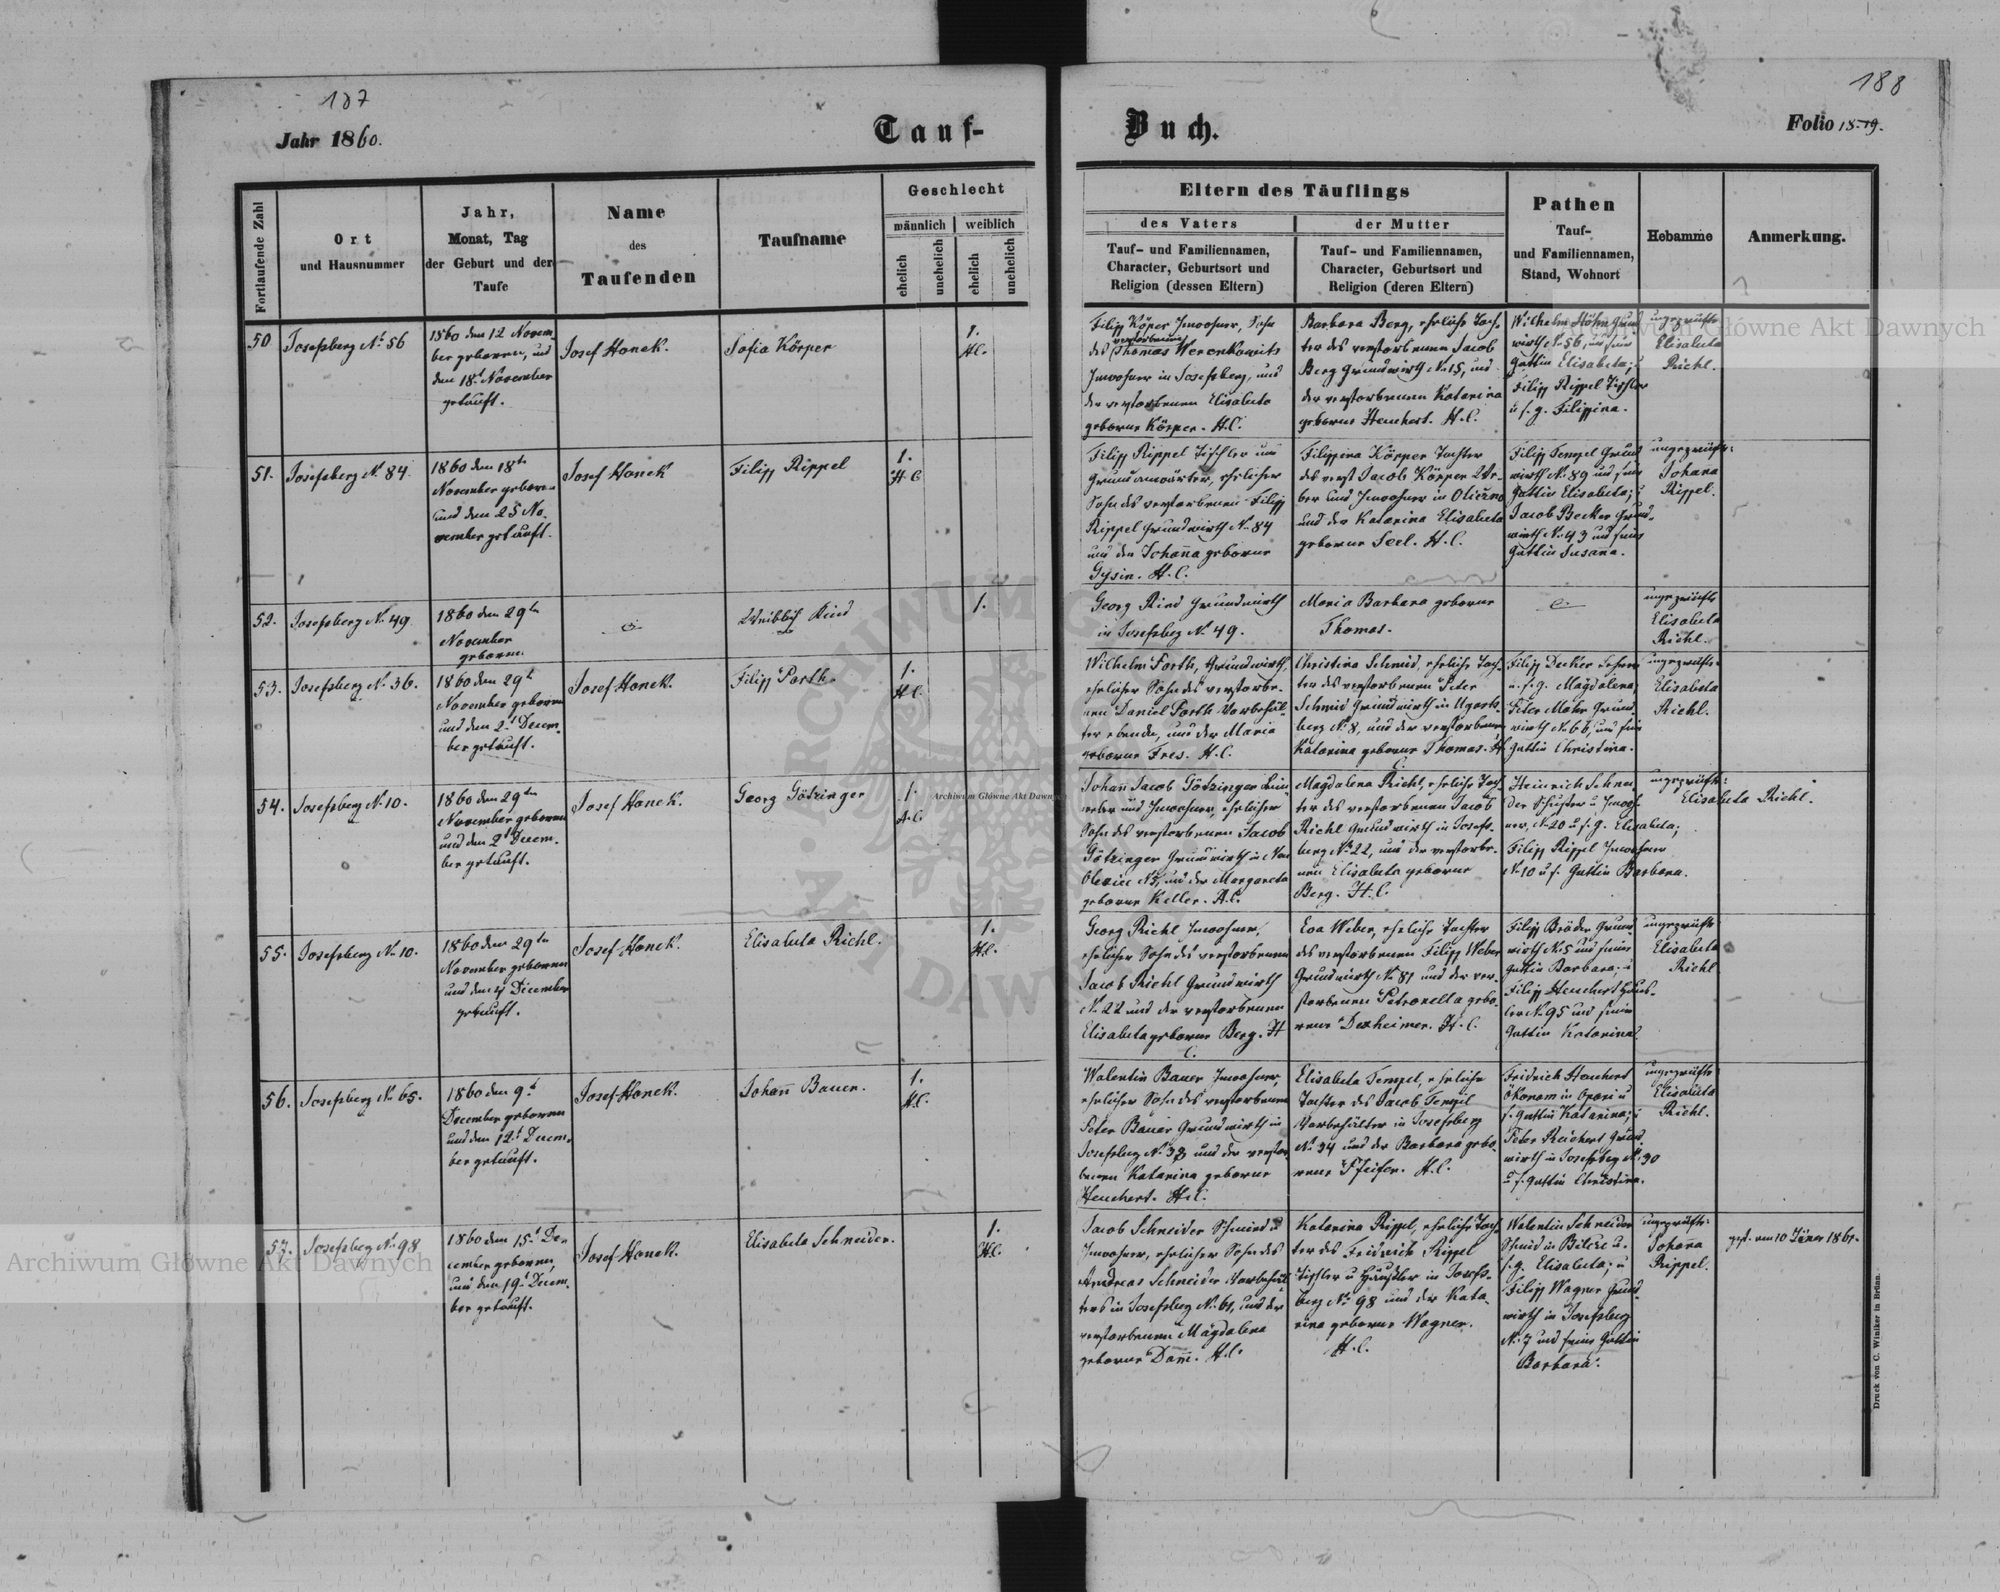 187
188
Jahr 1860.
Tauf-
Buch.
Folio 18-19.
Fortlaufende Zahl
Ort
und Hausnummer
Jahr,
Monat, Tag
der Geburt und der
Taufe
Name
des
Taufenden
Taufname
Geschlecht
männlich
weiblich
ehelich
unehelich
ehelich
unehelich
Eltern des Täuflings
des Vaters
der Mutter
Tauf- und Familiennamen,
Character, Geburtsort und
Religion (dessen Eltern)
Tauf- und Familiennamen,
Character, Geburtsort und
Religion (deren Eltern)
Pathen
Tauf-
und Familiennamen,
Stand, Wohnort
Hebamme
Anmerkung.
50
Josefsberg No 56
1860 den 12 Novem-
ber geboren, und
den 18t November
getauft.
Josef Honek.
Sofia Körper
1.
H.C.
Filip Köper Inwohner, Sohn
verstorbenen
des Thomas Werenkowits
Inwohner in Josefsberg, und
der verstorbenen Elisabeta
geborne Körper. H.C.
Barbara Berg, eheliche Toch-
ter des verstorbenen Jacob
Berg Grundwirth No 15, und
der verstorbenen Katarina
geborne Heuchert. H.C.
Wilhelm Höhn Grund
wirth No 56, und seine
Gattin Elisabeta; u
Filipp Rippel Tischler
u s. g. Filippina.
ungeprüfte
Elisabeta
Richl.
51.
Josefsberg No 84.
1860 den 18tn
November geboren
und den 25 No-
vember getauft.
Josef Honek
Filipp Rippel
1.
H.C
Filipp Rippel Tischler und
Grundanwärter, ehelicher
Sohn des verstorbenen Filipp
Rippel Grundwirth No 84
und der Johanna geborne
Gysin. H.C.
Filippina Körper Tochter
des verst Jacob Körper We-
ber und Inwohner in Oliczno
und der Katarina Elisabeta
geborne Seel. H.C.
Filipp Tempel Grund
wirth No 89 und seine
Gattin Elisabeta; u
Jacob Becker Grund-
wirth No 43 und seine
Gattin Susana.
ungeprüfte:
Johana
Rippel.
52.
Josefsberg No 49
1860 den 29tn
November
geboren.
Weiblich Kind
1.
Georg Ried Grundwirth
in Josefsberg No 49.
Maria Barbara geborne
Thomas.
ungeprüfte
Elisabeta
Richl.
53.
Josefsberg No 36.
1860 den 29t
November geboren
und den 2t Decem-
ber getauft.
Josef Honek.
Filipp Porth.
1.
H.C.
Wilhelm Porth, Grundwirth,
ehelicher Sohn des verstorbe-
nen Daniel Porth Vorbehäl-
ter ebenda, und der Maria
geborne Fres. H.C.
Christina Schmid, eheliche Toch-
ter des verstorbenen Peter
Schmid Grundwirth in Ugarts-
berg No 8, und der verstorbenen
Katarina geborne Thomas. H.
C.
Filipp Decker
u. s. g. Magdalena;
Peter Mohr Grund
wirth No 66, und sein
Gattin Christina.
ungeprüfte:
Elisabeta
Richl.
54.
Josefsberg No 10.
1860 den 29ten
November geboren
und den 2t Decem-
ber getauft.
Josef Honek.
Georg Götzinger
1.
H.C.
Johan Jacob Götzinger Lein
weber und Inwohner, ehelicher
Sohn des verstorbenen Jacob
Götzinger Grundwirth in Neu
Olexice No 5, und der Margareta
geborne Keller. A.C.
Magdalena Richl, eheliche Toch-
ter des verstorbenen Jacob
Richl Grundwirth in Josefs-
berg No 22, und der verstorbe-
nen Elisabeta geborne
Berg. H.C.
Heinrich Schnei
der Schuster u Inwoh-
ner, No 20 u. s. g. Elisabeta;
Filipp Rippel Inwohner
No 10 u s. Gattin Barbara.
ungeprüfte:
Elisabeta Richl.
55.
Josefsberg No 10.
1860 den 29tn
November geboren
und den 4 December
getauft.
Josef Honek.
Elisabeta Richl.
1.
H.C.
Georg Richl Inwohner,
ehelicher Sohn des verstorbenen
Jacob Richl Grundwirth
No 22 und der verstorbenen
Elisabeta geborne Berg. H
C.
Eva Weber, eheliche Tochter
des verstorbenen Filipp Weber
Grundwirth No 81 und der ver-
storbenen Petronella gebo-
rene Dexheimer. H.C.
Filipp Bräder Grund-
wirth No 5 und seiner
Gattin Barbara; u
Filipp Heuchert Häus-
ler No 95 und seiner
Gattin Katarina.
ungeprüfte
Elisabeta
Richl
56.
Josefsberg No 65.
1860 den 9t
December geboren
und den 12t Decem-
ber getauft.
Josef Honek.
Johann Bauer.
1.
H.C.
Walentin Bauer Inwohner,
ehelicher Sohn des verstorbenen
Peter Bauer Grundwirth in
Josefsberg No 38 und der verstor-
benen Katarina geborne
Heuchert. H.C.
Elisabeta Tempel, eheliche
Tochter des Jacob Tempel
Vorbehälter in Josefsberg
No 34 und der Barbara gebo-
rene Pfeifer. H.C.
Fridrich Heuchert
Ökonom in Opori u
s. Gattin Katarina; u
Peter Reichert Grund-
wirth in Josefsberg No 30
u s. Gattin Christina.
ungeprüfte
Elisabeta
Richl.
57.
Josefsberg No 98
1860 den 15t De-
cember geboren,
und den 19t Decem-
ber getauft.
Josef Honek.
Elisabeta Schneider.
1.
H.C.
Jacob Schneider Schmied u
Inwohner, ehelicher Sohn des
Andreas Schneider Vorbehäl-
ters in Josefsberg No 61, und der
verstorbenen Magdalena
geborne Damm. H.C.
Katarina Rippel, eheliche Toch-
ter des Fridrich Rippel
Tischler u Häusler in Josefs-
berg No 98 und der Kata-
rina geborne Wagner.
H.C.
Walentin Schneider
Schmid in Bilcze u.
s. g. Elisabeta; u
Filipp Wagner Grund-
wirth in Josefsberg
No 7 und seine Gattin
Barbara.
ungeprüfte:
Johanna
Rippel.
gest. am 10 Jäner 1861.
Druck von C. Winiker in Brünn.
Archiwum Główne Akt Dawnych
Archiwum Główne Akt Dawnych
Archiwum Główne Akt Dawnych
ARCHIWUM GŁÓWNE AKT DAWNYCH